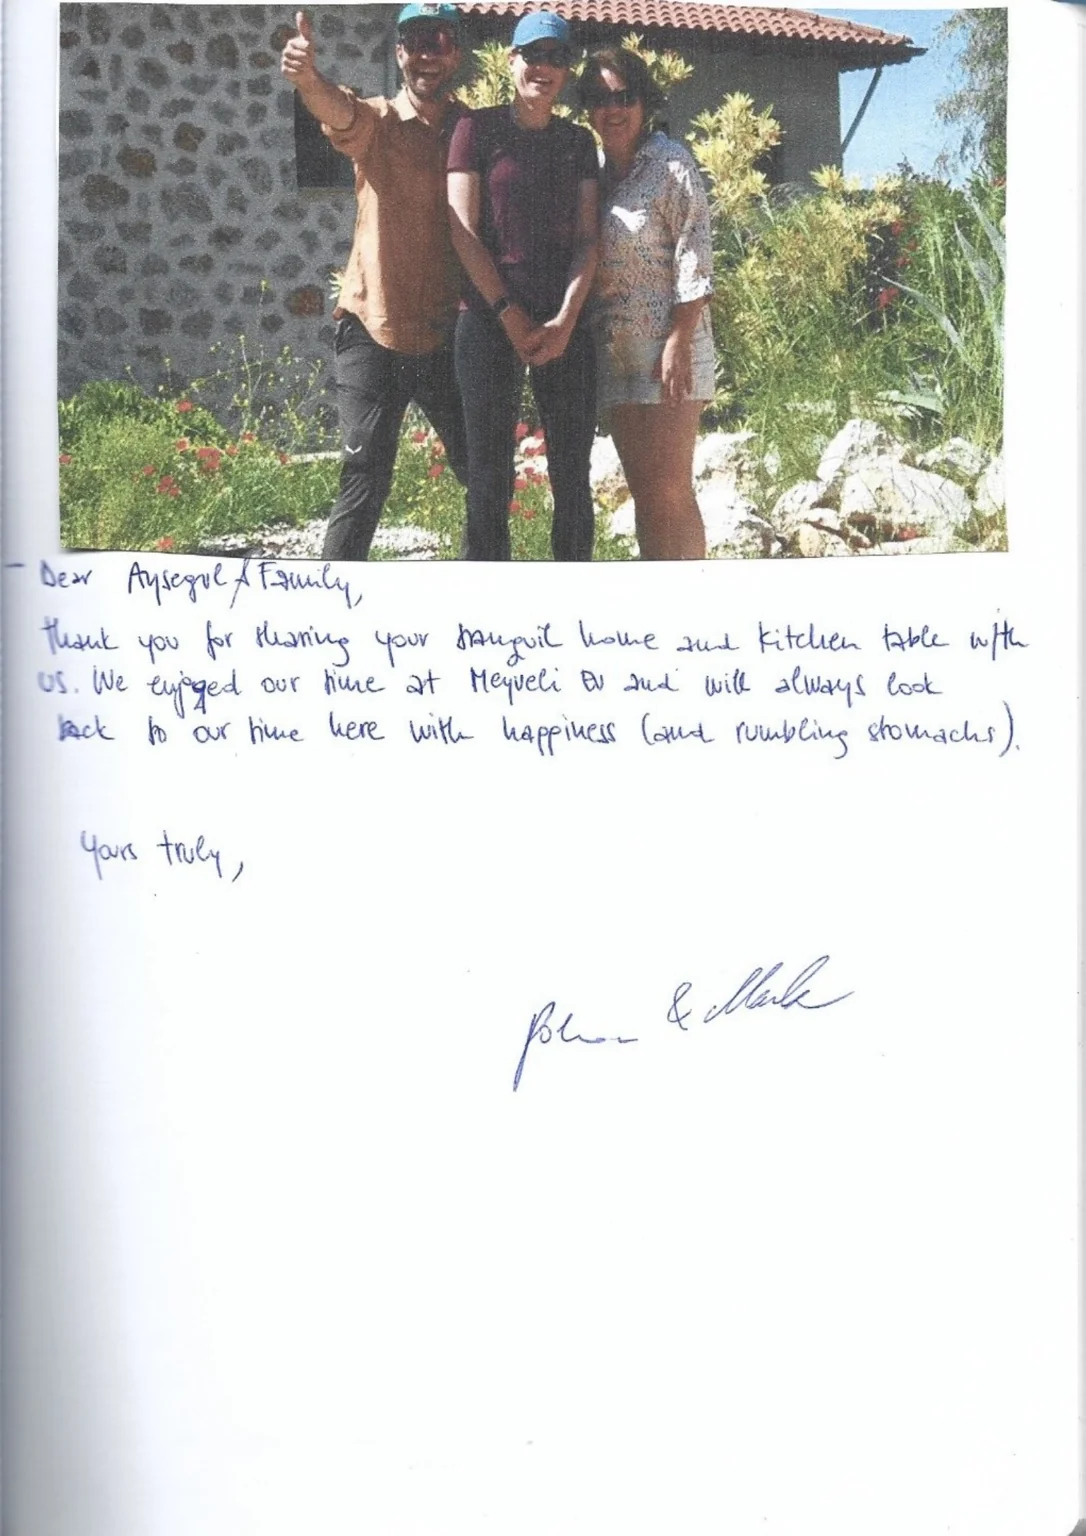 Dear Aysegul & Family,
Thank you for sharing your tranquil home and kitchen table with
us. We enjoyed our time at Meyveli Ev and will always look
back to our time here with happiness (and rumbling stomachs).
Yours truly,
&